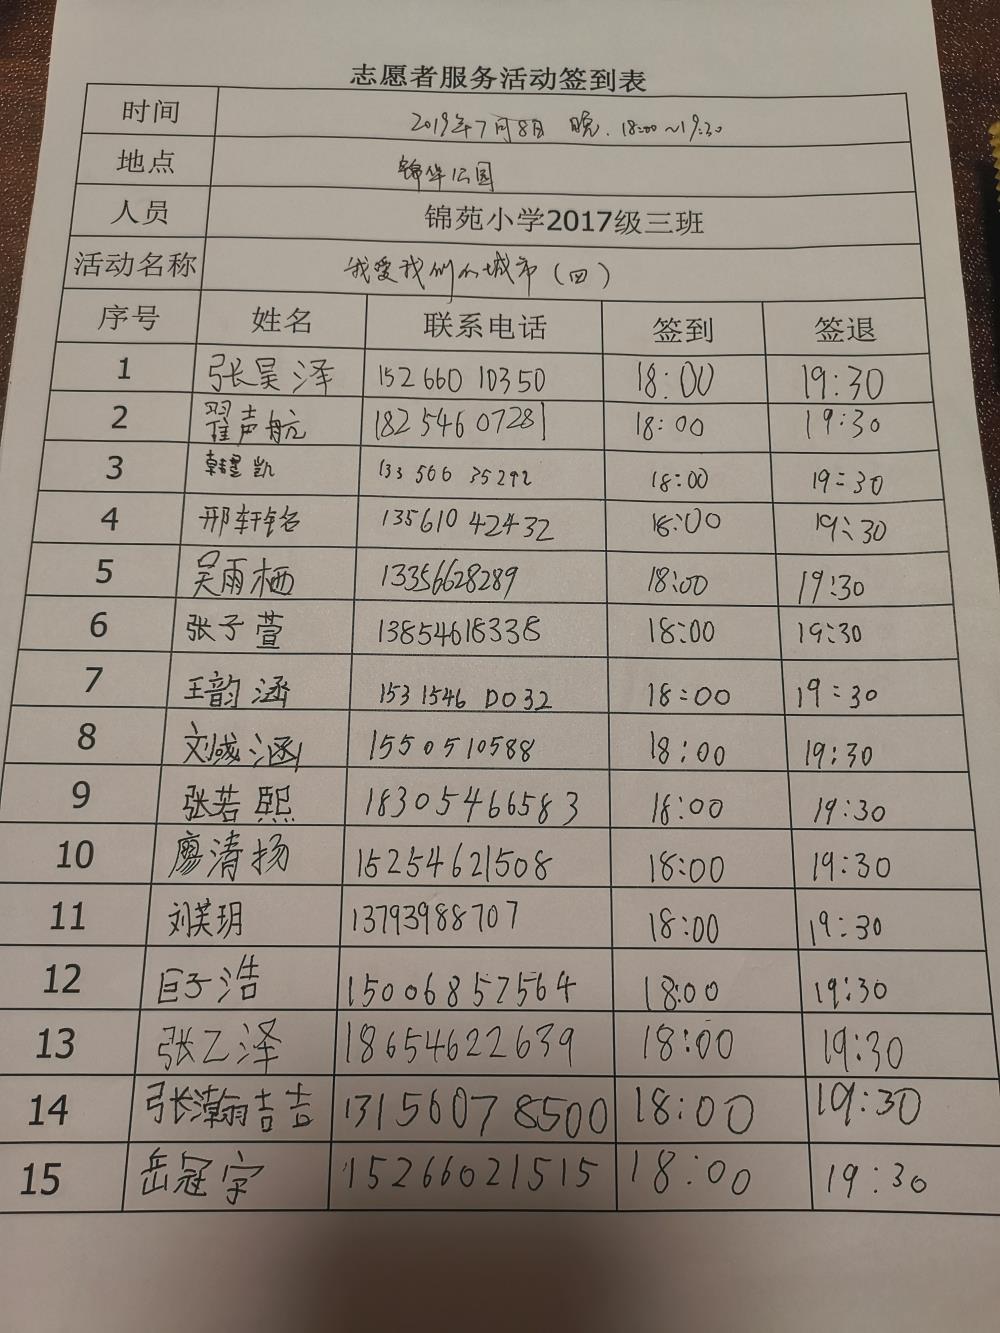 志愿者服务活动签到表
时间 2019年7月8日 晚. 18:00~19:30
地点 锦华公园
人员 锦苑小学2017级三班
活动名称 我爱我们的城市(四)
序号 姓名 联系电话 签到 签退
1 张昊泽 152 660 10350 18:00 19:30
2 翟声航 182 5460 7281 18:00 19:30
3 韩 凯 133 506 35292 18:00 19:30
4 邢轩铭 135610 42432 18:00 19:30
5 吴雨栖 13356628289 18:00 19:30
6 张子萱 13854618338 18:00 19:30
7 王韵涵 1531546 0032 18:00 19:30
8 刘 涵 1550510588 18:00 19:30
9 张若熙 18305466583 18:00 19:30
10 廖清扬 15254621508 18:00 19:30
11 刘芙玥 13793988707 18:00 19:30
12 巨子浩 15006857564 18:00 19:30
13 张乙泽 18654622639 18:00 19:30
14 张瀚喆 13156078500 18:00 19:30
15 岳冠宇 15266021515 18:00 19:30